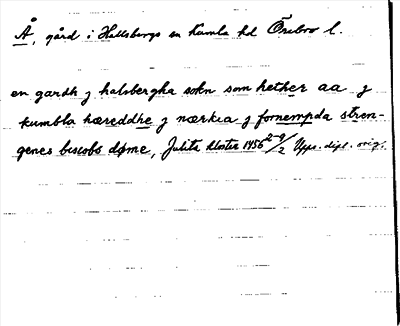 Å, gård i Hallsbergs sn Kumla hd Örebro l.
en gardh j halsbergha sokn som hether aa j
kumbla hæreddhe j nærkia j fornempda stren-
genes biscobs døme, Julita kloster 1456 2-9/2 Upps. dipl. orig.